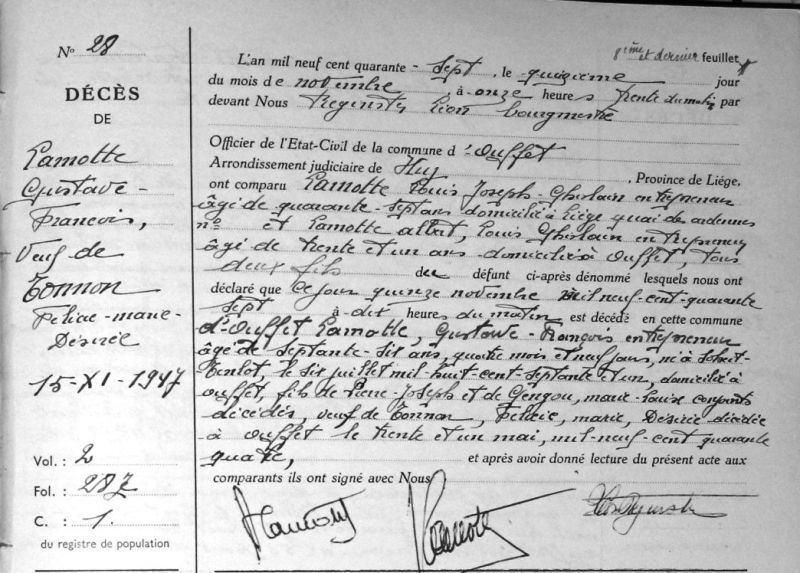 N° 28
DÉCÈS
DE
Lamotte
Gustave-
François,
Veuf de
Tonnon
Félicie-marie-
Désirée
15-XI-1947
Vol. : 2
Fol. : 287
C. : 1.
du registre de population
8ième et dernier feuillet
L'an mil neuf cent quarante-sept, le quinzième jour
du mois de novembre, à onze heures trente du matin par
devant Nous Regnister Léon bourgmestre
Officier de l'Etat-Civil de la commune d'Ouffet
Arrondissement judiciaire de Huy, Province de Liége,
ont comparu Lamotte Louis Joseph-Ghislain entrepreneur
âgé de quarante-sept ans domicilié à Liège quai des ardennes
n° et Lamotte albert, Louis Ghislain entrepreneur
âgé de trente et un ans domicilié à Ouffet, tous
deux fils du défunt ci-après dénommé lesquels nous ont
déclaré que ce jour quinze novembre mil neuf-cent-quarante
sept à dix heures du matin est décédé en cette commune
d'Ouffet Lamotte, Gustave-François entrepreneur
âgé de septante-six ans, quatre mois et neuf jours, né à
le six juillet mil huit-cent-septante et un, domicilié à
Ouffet, fils de Pierre-Joseph et de Gengou, marie-Louise conjoints
décédés, veuf de Tonnon, Félicie, marie, Désirée décédée
à Ouffet le trente et un mai, mil-neuf-cent quarante
quatre, et après avoir donné lecture du présent acte aux
comparants ils ont signé avec Nous